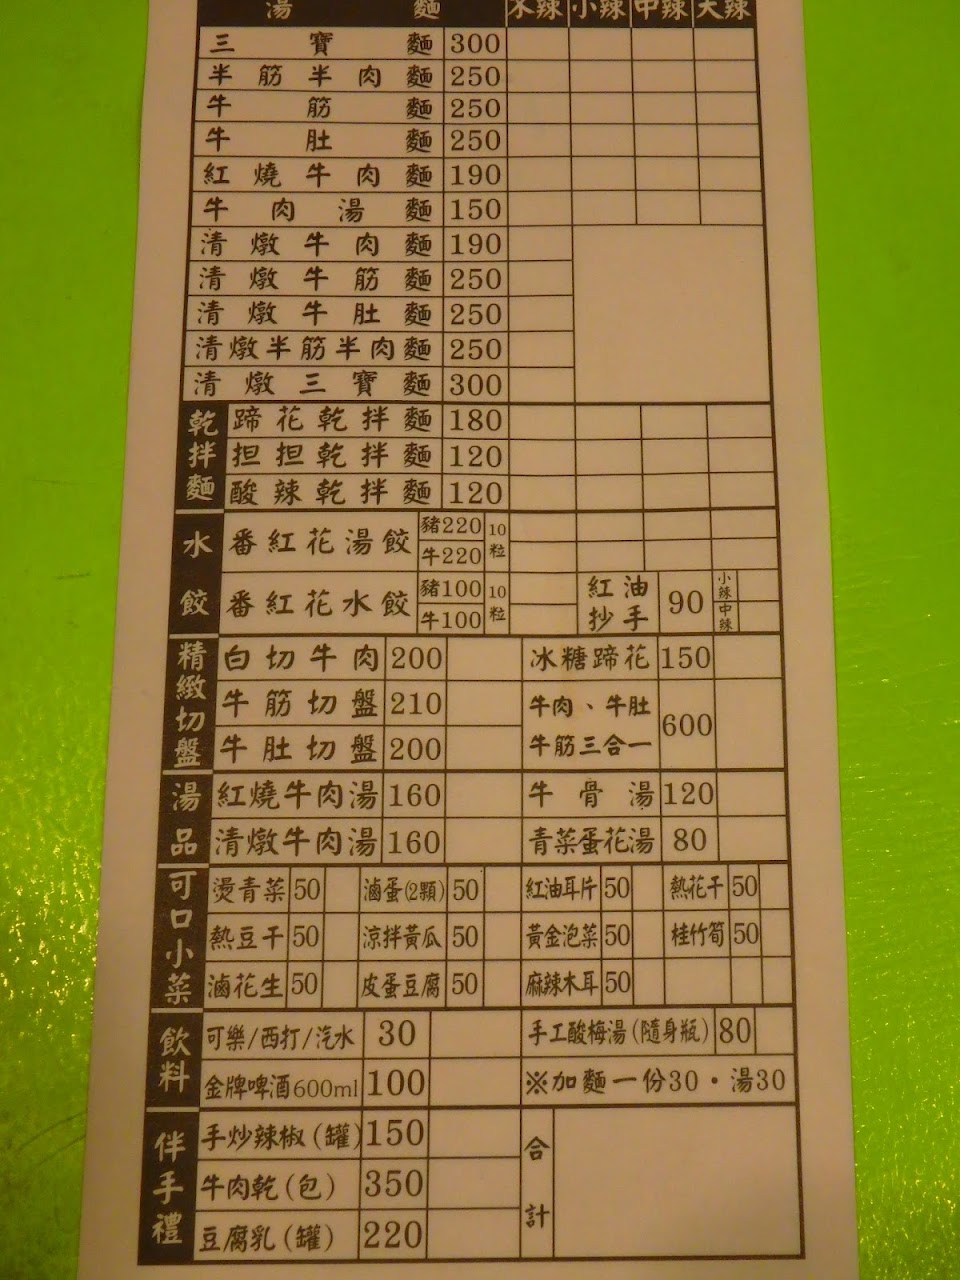 湯 麵 不辣 小辣 中辣 大辣
三寶麵 300
半筋半肉麵 250
牛筋麵 250
牛肚麵 250
紅燒牛肉麵 190
牛肉湯麵 150
清燉牛肉麵 190
清燉牛筋麵 250
清燉牛肚麵 250
清燉半筋半肉麵 250
清燉三寶麵 300
乾拌麵
蹄花乾拌麵 180
担担乾拌麵 120
酸辣乾拌麵 120
水餃
番紅花湯餃 豬220 牛220 10粒
番紅花水餃 豬100 牛100 10粒
紅油抄手 90 小辣 中辣
精緻切盤
白切牛肉 200 冰糖蹄花 150
牛筋切盤 210 牛肉、牛肚
牛筋三合一 600
牛肚切盤 200
湯品
紅燒牛肉湯 160 牛骨湯 120
清燉牛肉湯 160 青菜蛋花湯 80
可口小菜
燙青菜 50 滷蛋(2顆) 50 紅油耳片 50 熱花干 50
熱豆干 50 涼拌黃瓜 50 黃金泡菜 50 桂竹筍 50
滷花生 50 皮蛋豆腐 50 麻辣木耳 50
飲料
可樂/西打/汽水 30 手工酸梅湯(隨身瓶) 80
金牌啤酒600ml 100 ※加麵一份30・湯30
伴手禮
手炒辣椒(罐) 150
牛肉乾(包) 350
豆腐乳(罐) 220
合計